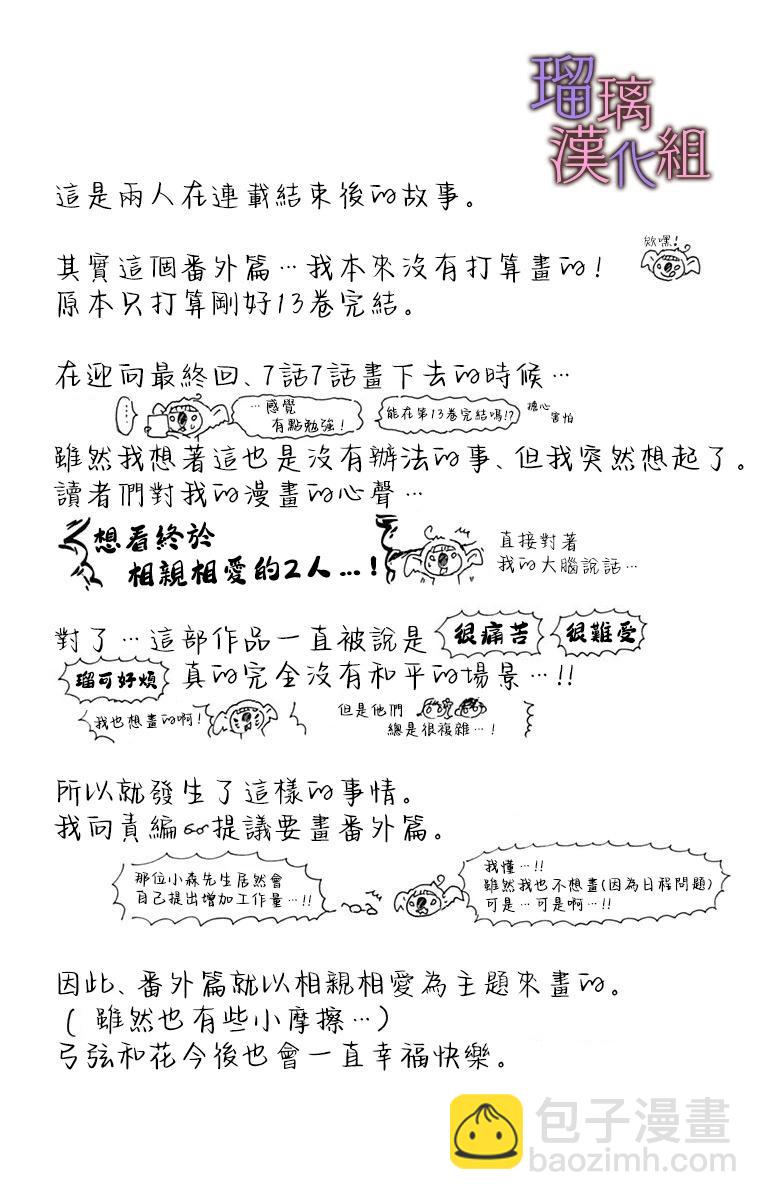 瑠璃
漢化組
這是兩人在連載結束後的故事。
欸嘿!
其實這個番外篇…我本來沒有打算畫的!
原本只打算剛好13卷完結。
在迎向最終回、7話7話畫下去的時候…
…感覺
有點勉強!
能在第13卷完結嗎!?
擔心
害怕
雖然我想著這也是沒有辦法的事、但我突然想起了。
讀者們對我的漫畫的心聲…
想看終於
相親相愛的2人…!
直接對著
我的大腦說話…
對了…這部作品一直被說是 很痛苦 很難受
瑠可好煩 真的完全沒有和平的場景…!!
我也想畫的啊!
但是他們
總是很複雜…!
所以就發生了這樣的事情。
我向責編提議要畫番外篇。
那位小森先生居然會
自己提出增加工作量…!!
我懂…!!
雖然我也不想畫(因為日程問題)
可是…可是啊…!!
因此、番外篇就以相親相愛為主題來畫的。
(雖然也有些小摩擦…)
弓弦和花今後也會一直幸福快樂。
包子漫畫
baozimh.com